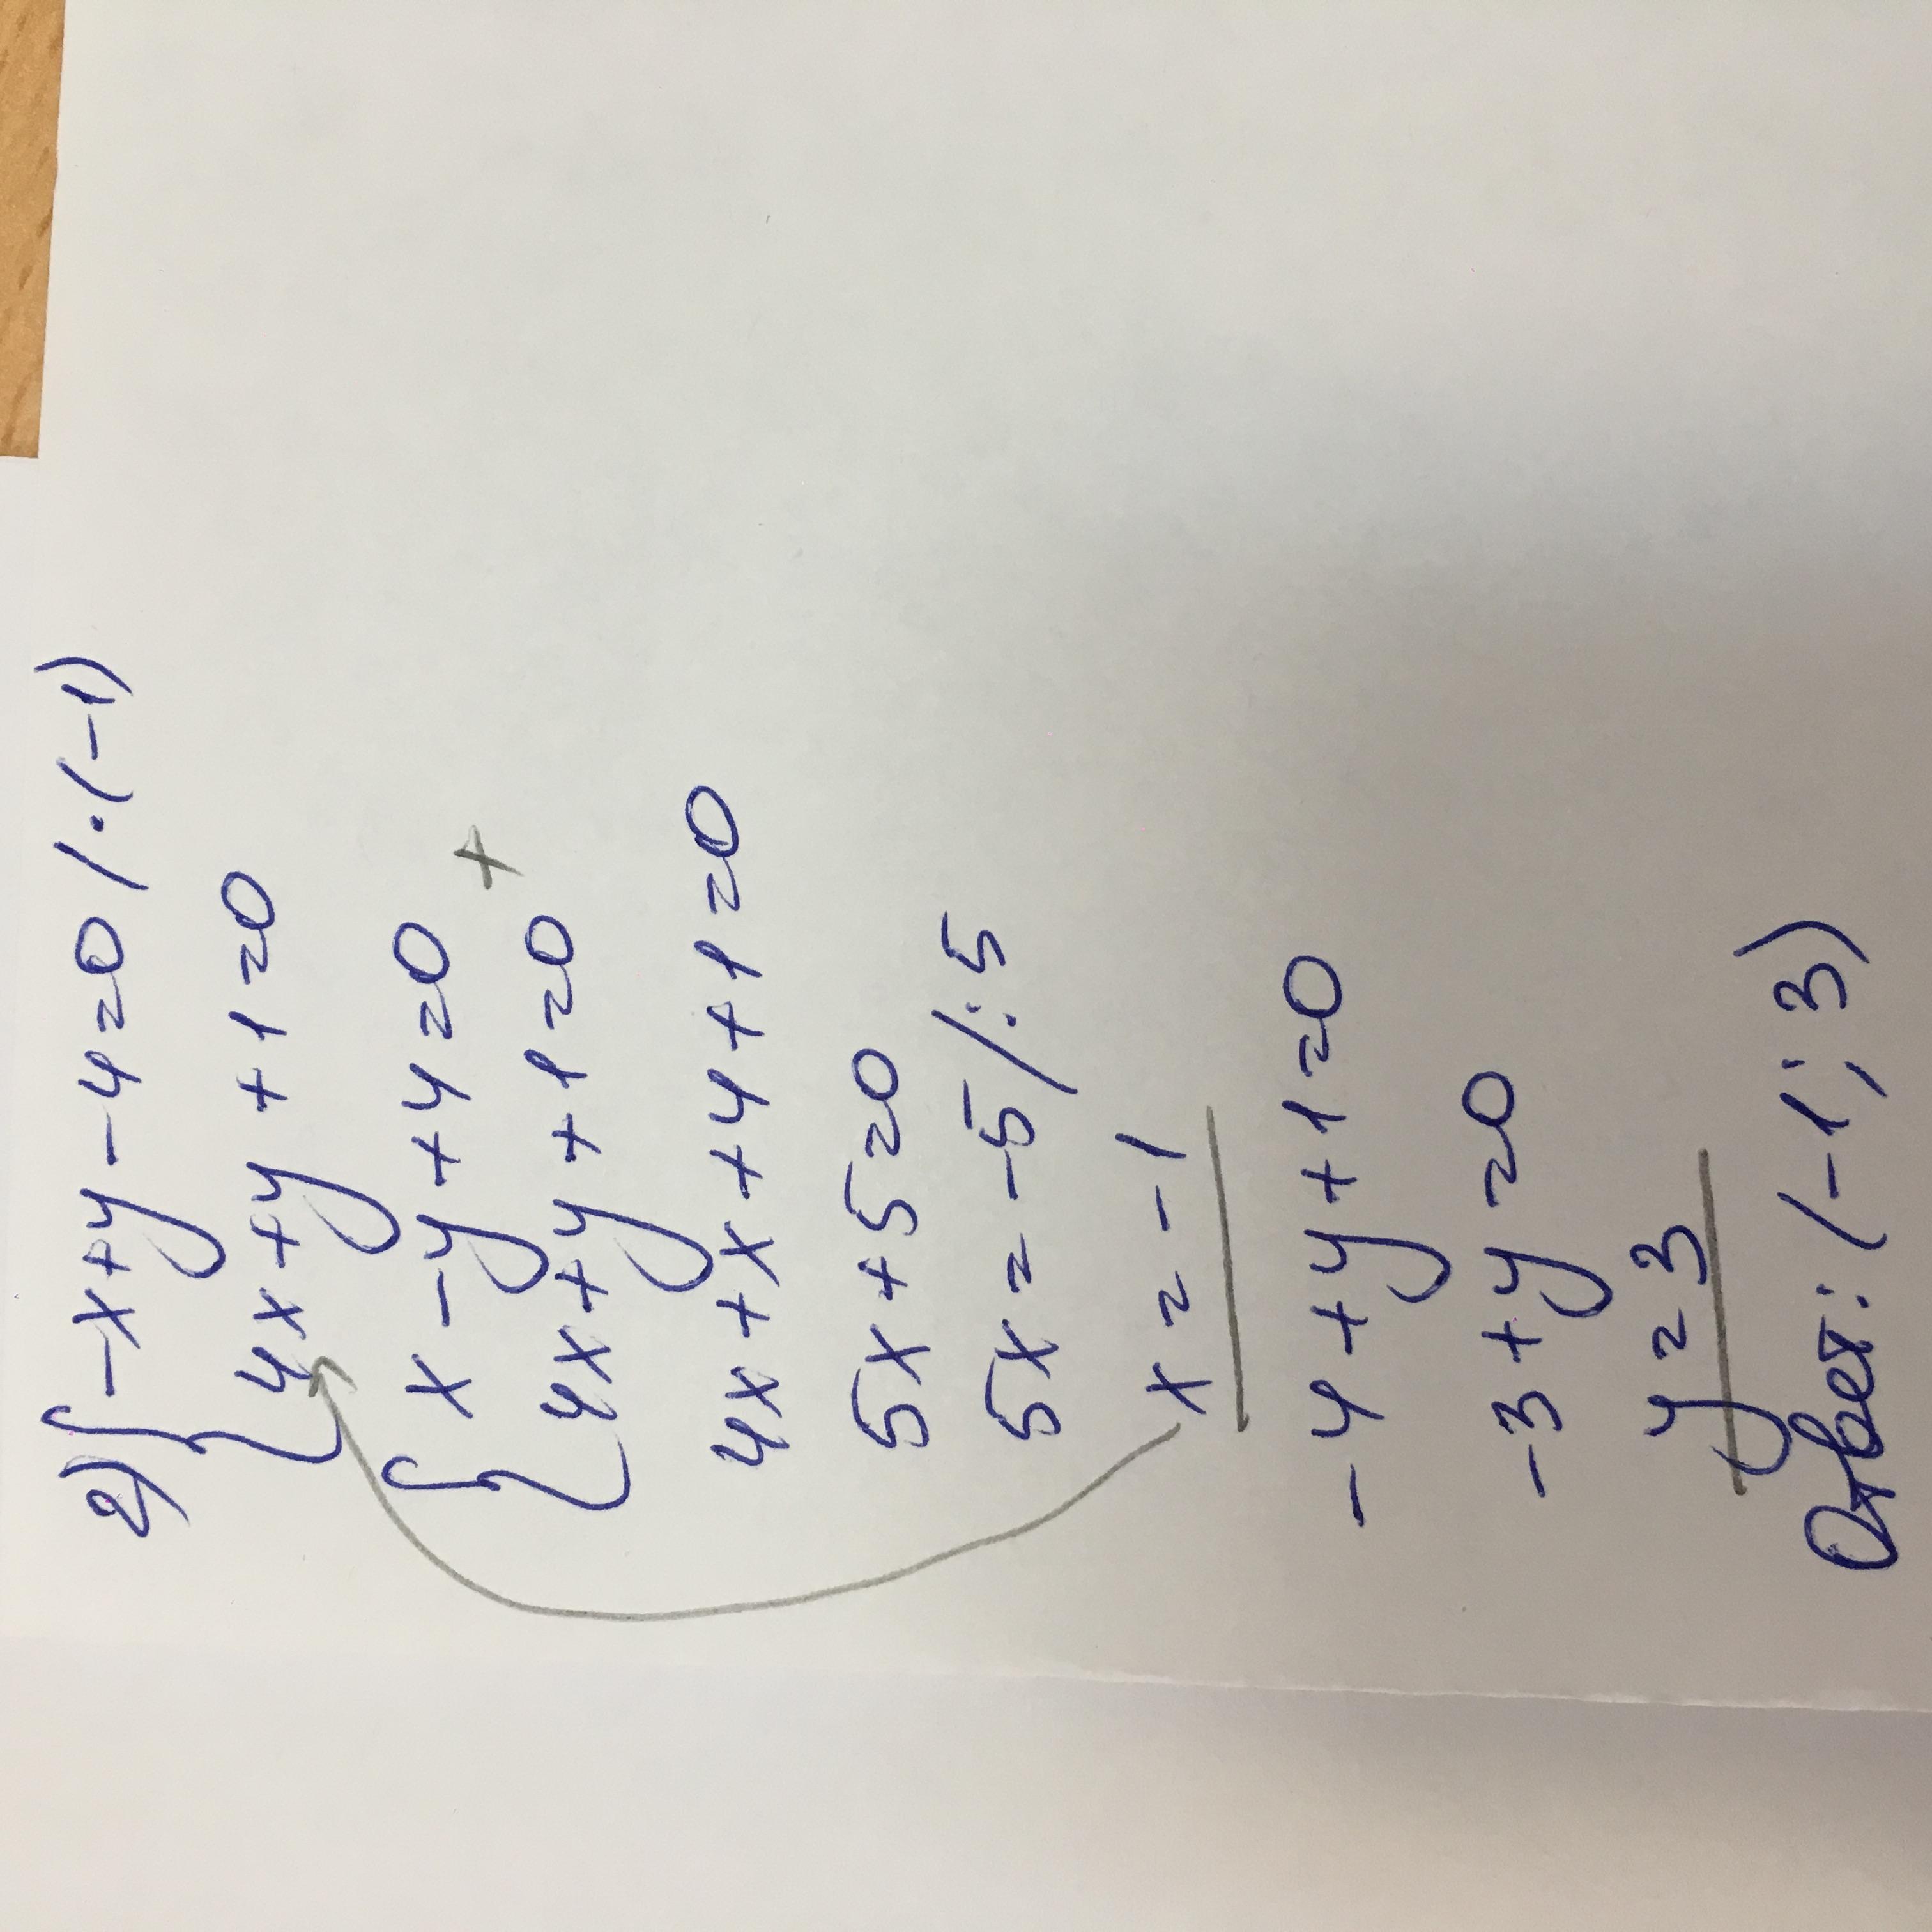 2) { -x+y-4=0 /·(-1)
4x+y+1=0
{ x-y+4=0
+
4x+y+1=0
4x+x+4+1=0
5x+5=0
5x=-5/:5
x=-1
-4+y+1=0
-3+y=0
y=3
Ответ: (-1; 3)